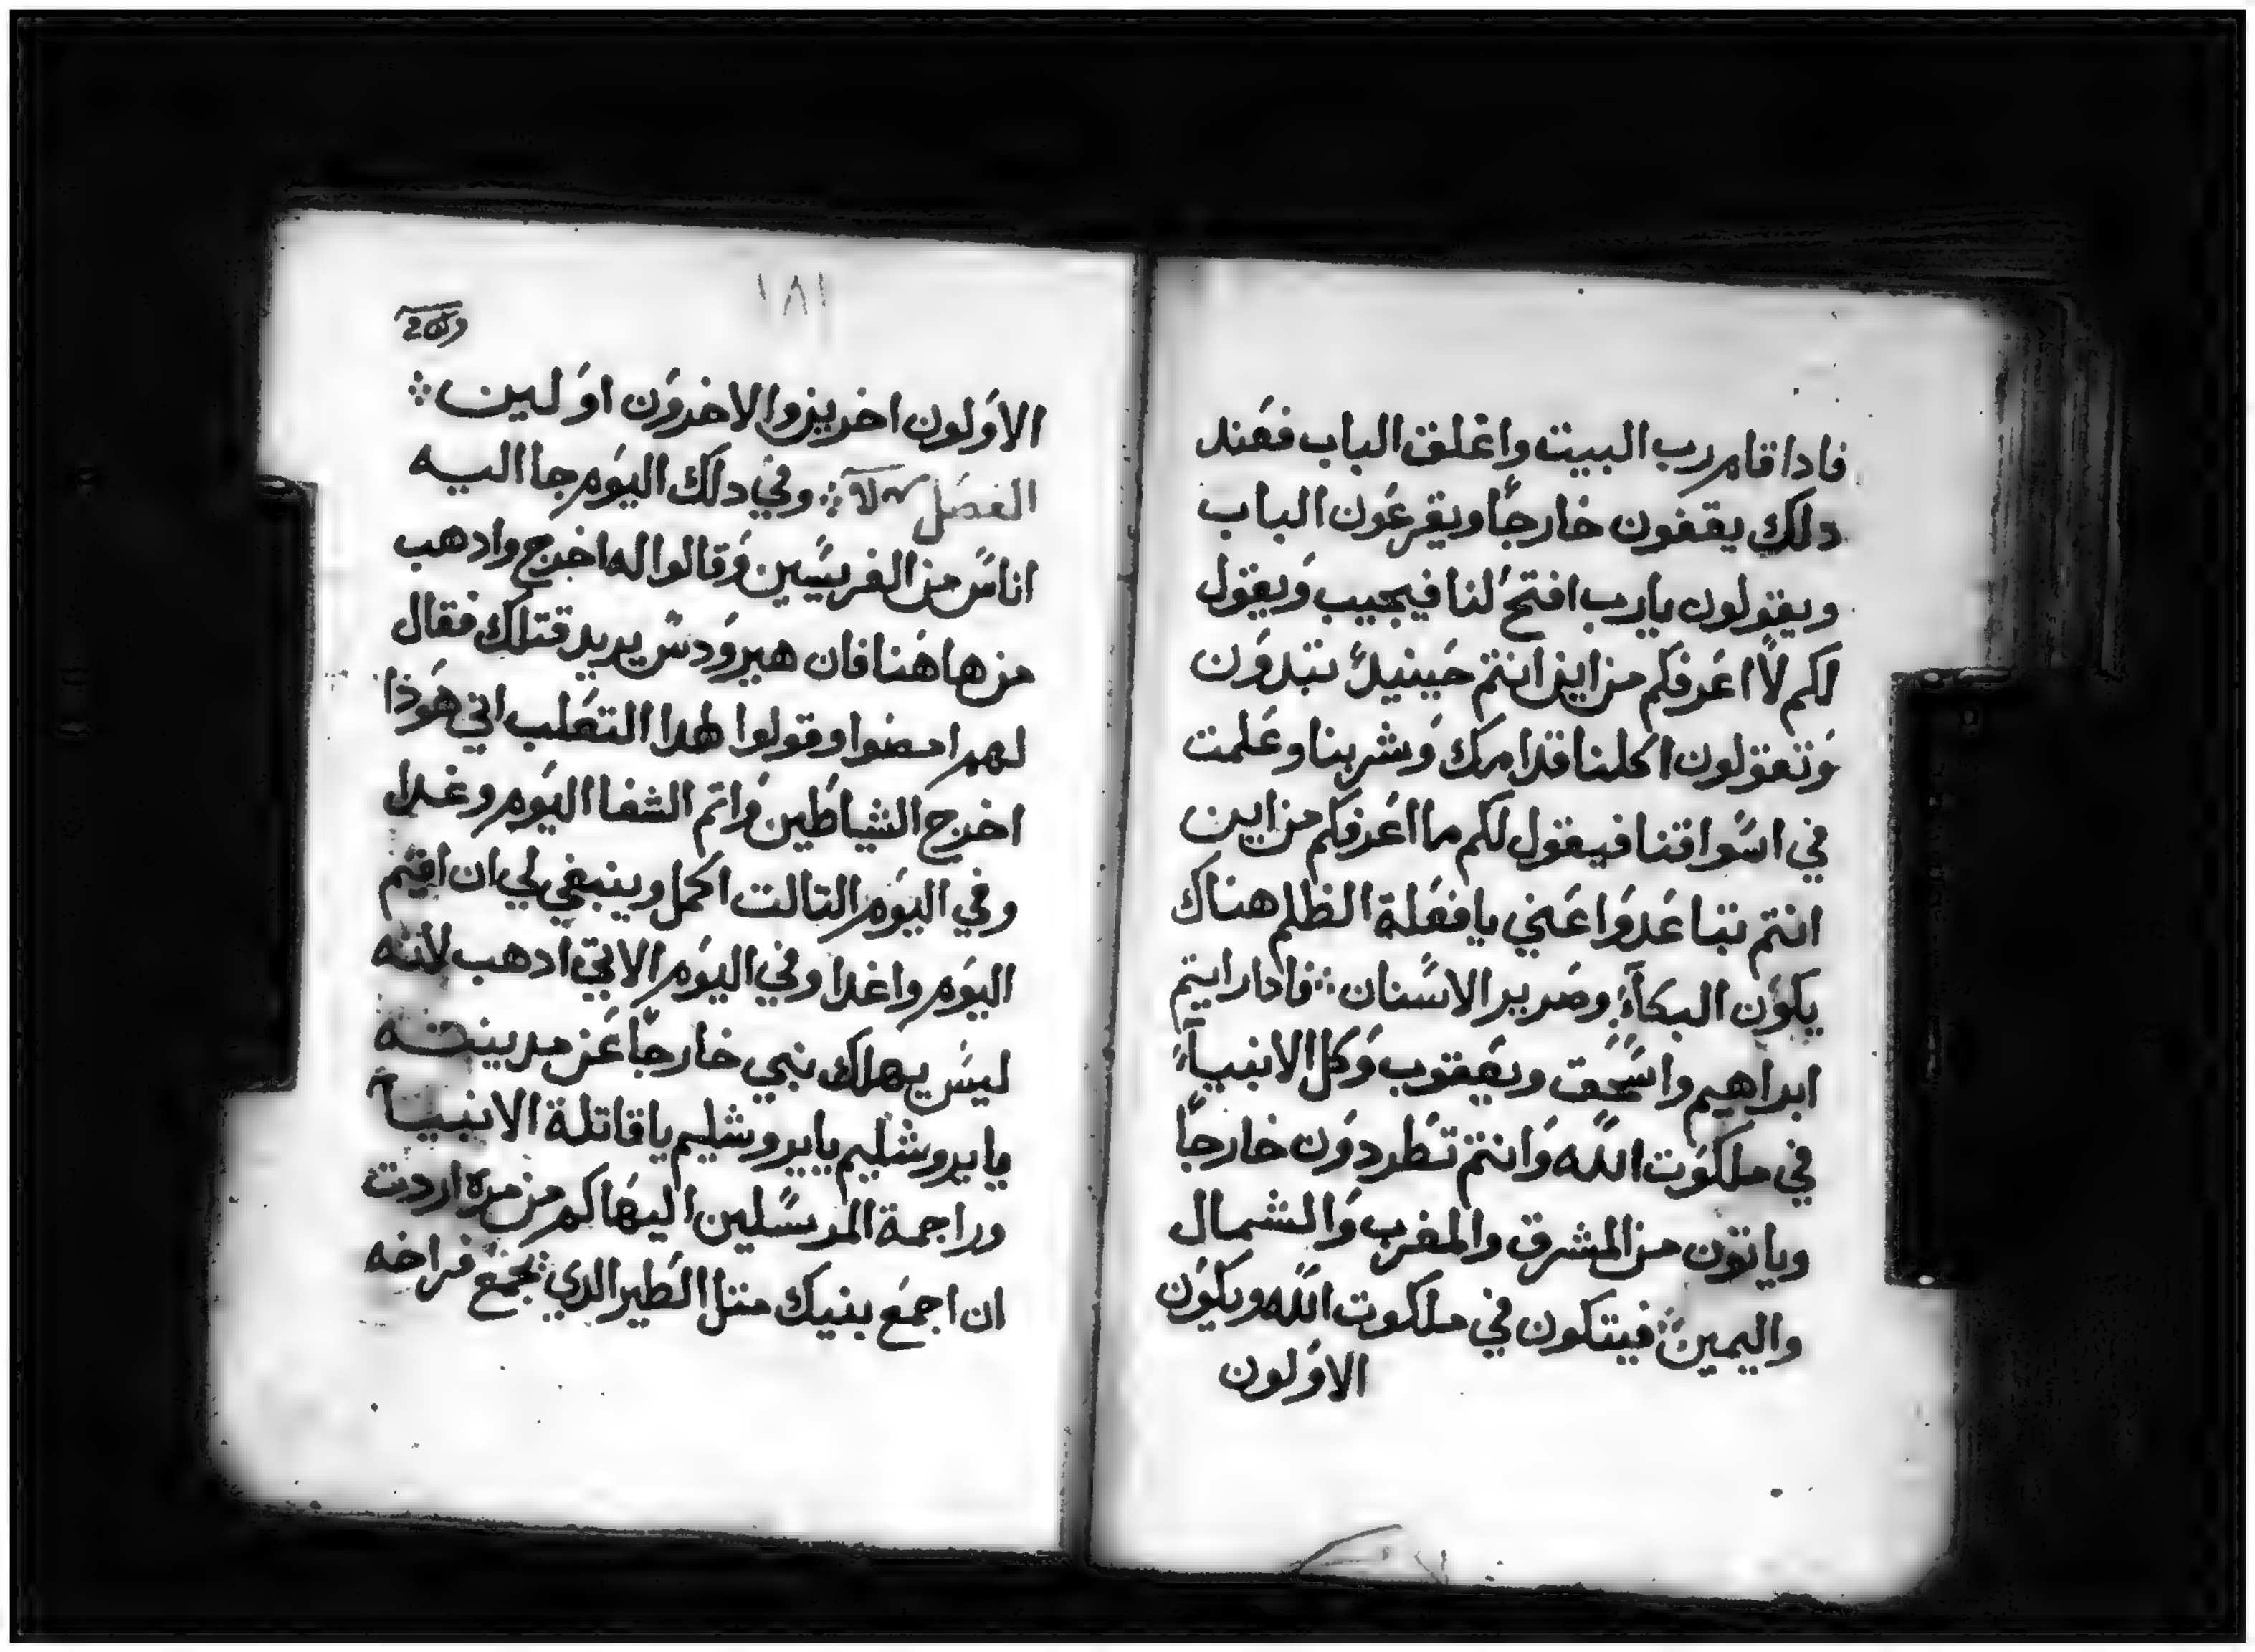 فادا قام رب البيت واغلق الباب فعند
دلك يقفون خارجًا ويقرعون الباب
ويقولون يارب افتح لنا فيجيب ويقول
لكم لا اعرفكم من اين انتم حينيدً تبدون
وتقولون اكلنا قدامك وشربنا وعلمت
في اسواقنا فيقول لكم ما اعرفكم من اين
انتم تباعدوا عني يا فعلة الظلم هناك
يكون البكاء وصرير الاسنان ؞ فادا رايتم
ابراهيم واسحق ويعقوب وكل الانبياء
في ملكوت الله وانتم تطردون خارجًا
وياتون من المشرق والمغرب والشمال
واليمين ؞ فيتكون في ملكوت الله ويكون
الاولون
١٨١
الاولون اخرين والاخرون اولين ؞
الفصل ؞ وفي دلك اليوم جا اليه
اناس من الفريسين وقالوا له اخرج وادهب
من هاهنا فان هيرودس يريد قتلك فقال
لهم امضوا وقولوا لهدا التعلب اني هوذا
اخرج الشياطين واتم الشفا اليوم وغدا
وفي اليوم التالت اكمل وينبغي لي ان اقيم
اليوم واغدا وفي اليوم الاتي ادهب لانه
ليس يهلك نبي خارجًا عن مدينته
يا يروشليم يا يروشليم يا قاتلة الانبيا
وراجمة المرسلين اليها كم من مرة اردت
ان اجمع بنيك متل الطير الدي يجمع فراخه